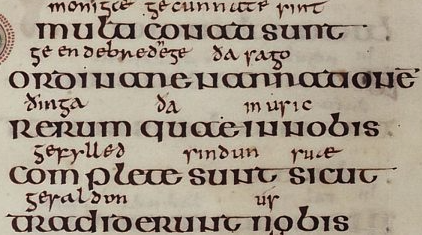 monigæ gecunnate sint
multi conati sunt
ge endebrednege ða sago
ordinare narrationē
ðinga ða in usic
rerum quae in nobis
gefylled sindun suæ
complete sunt sicut
gesaldon us
tradiderunt nobis